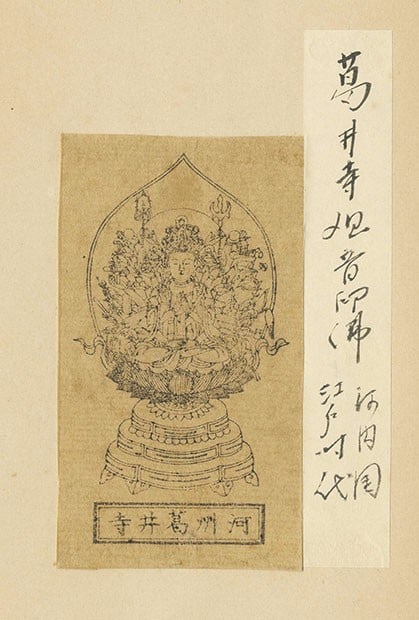 葛井寺观音印佛
河内国
江戸时代
河州葛井寺